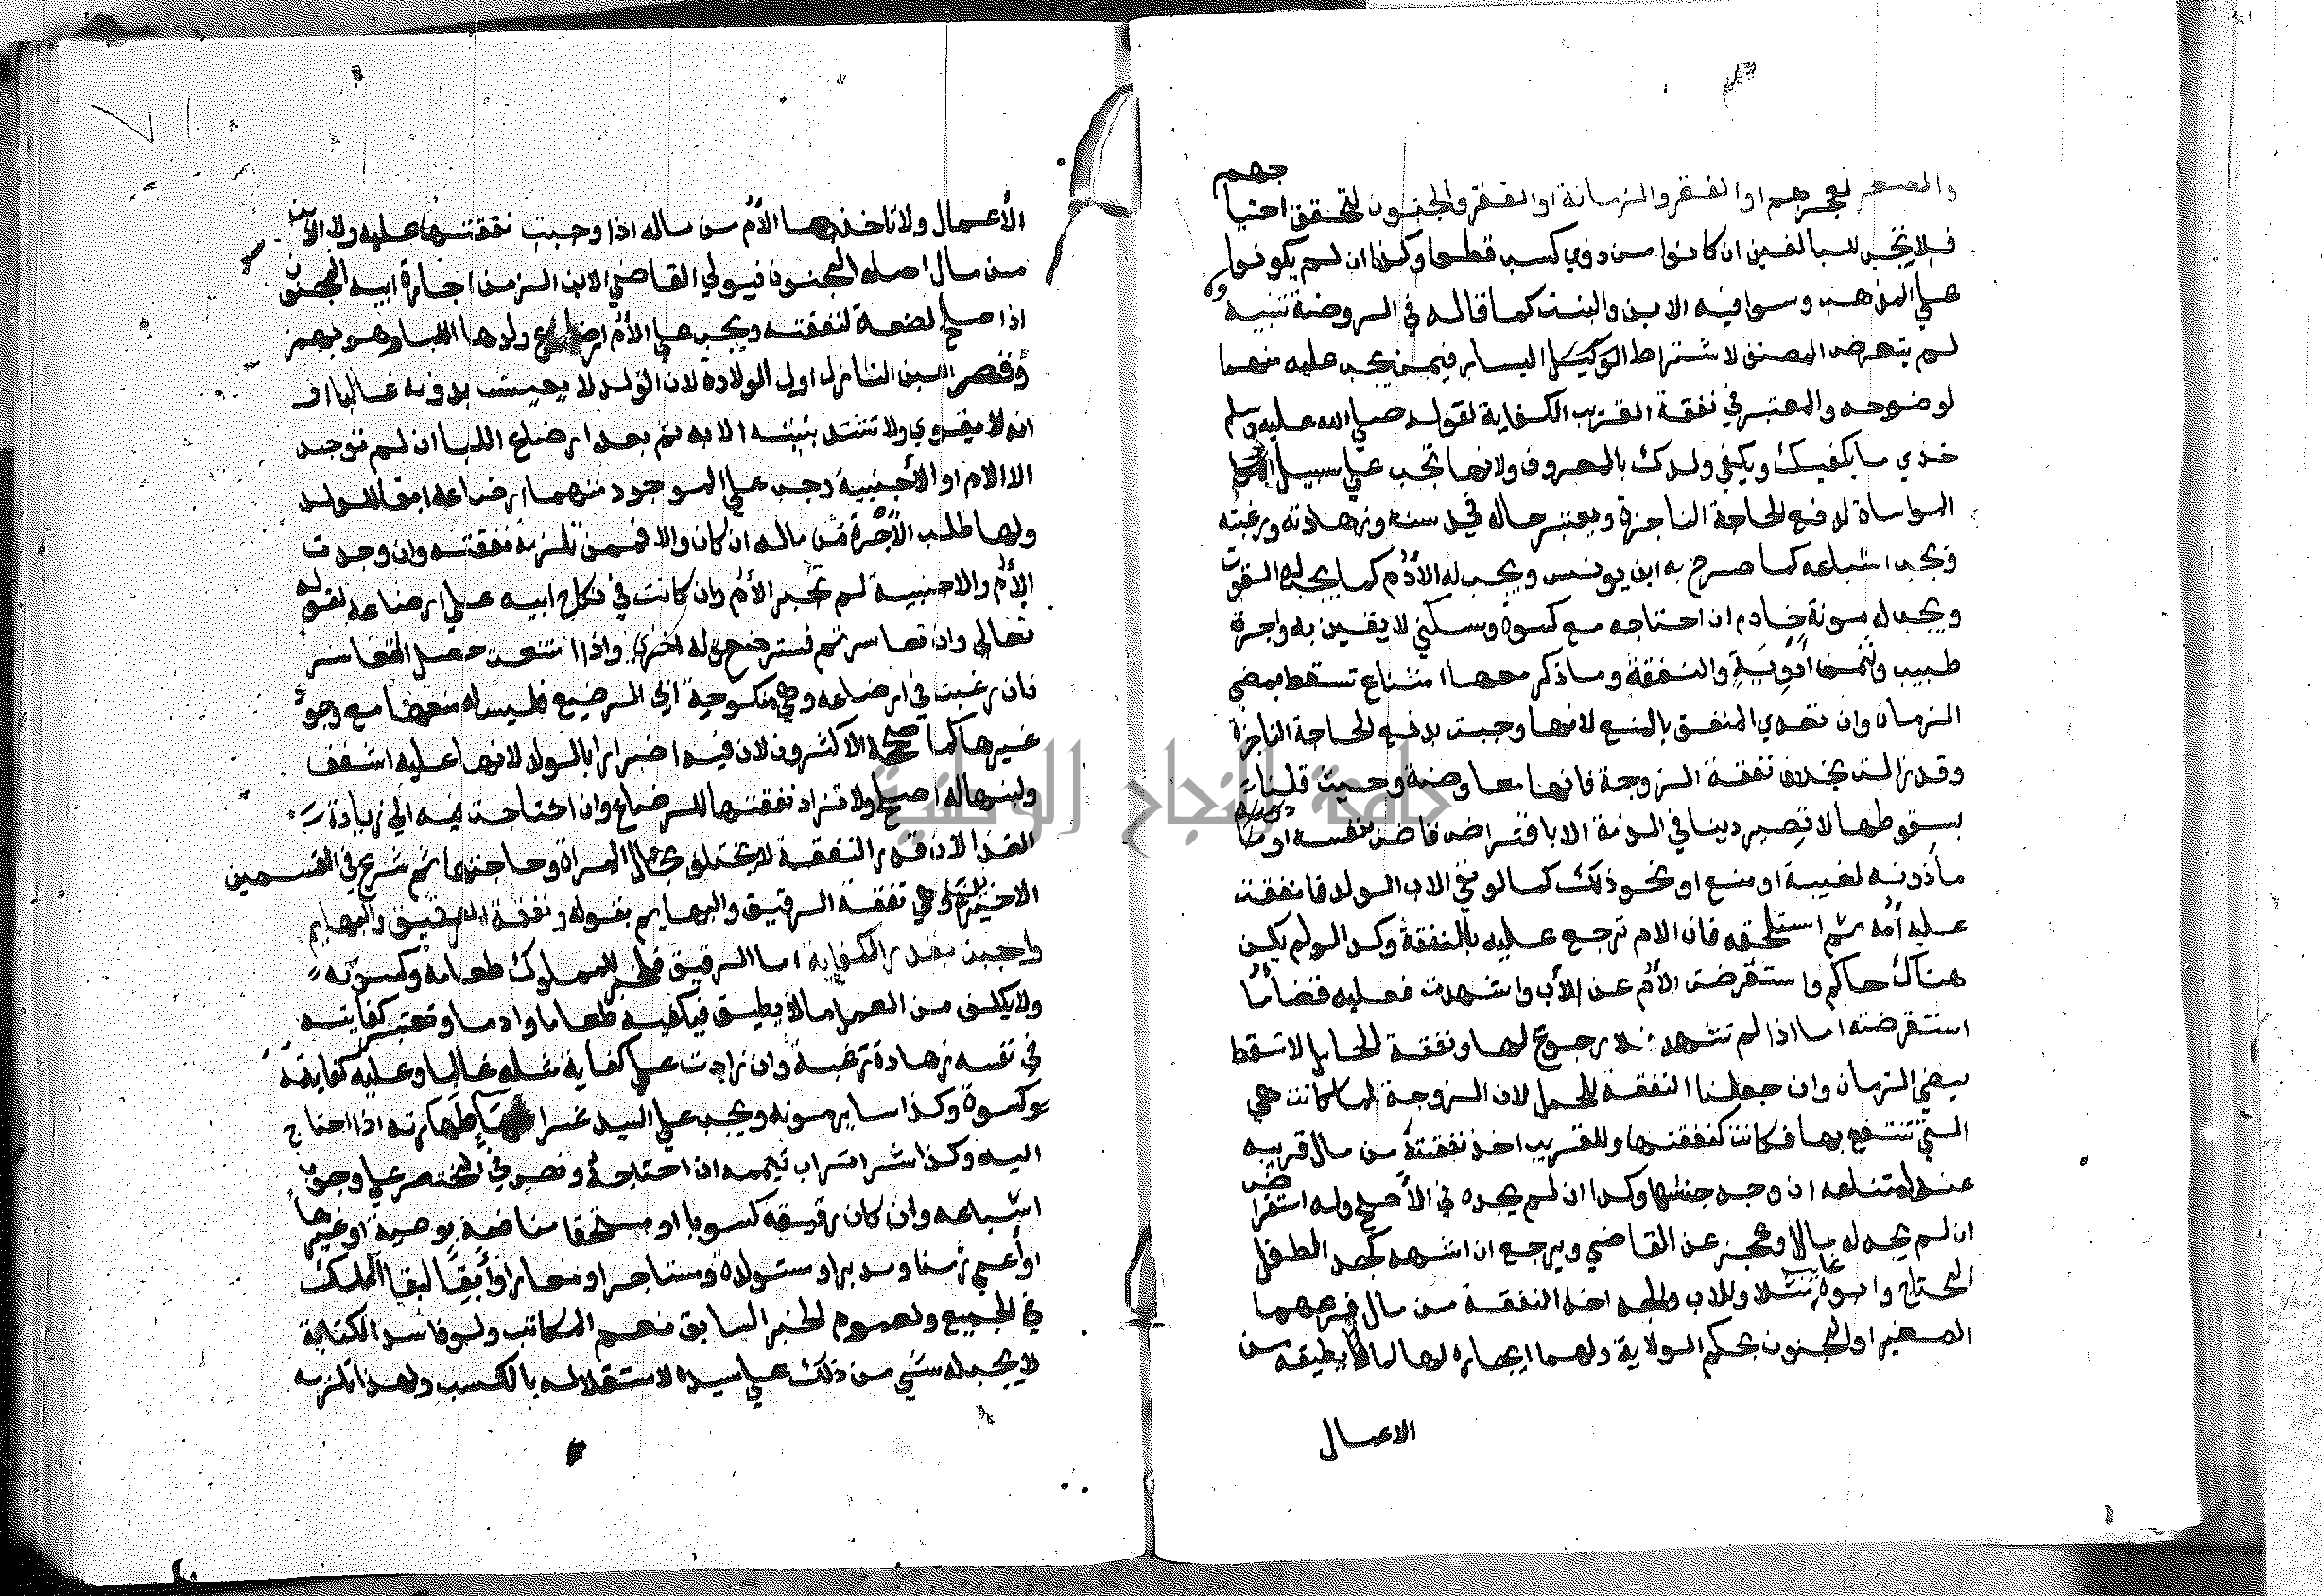 والصغر لعجزهم او الفقر والزمانة او الفقر والجنون لتحقق احتياجهم
فلا تجب للبالغين ان كانوا من ذوي كسب قطعا وكذا ان لم يكونوا
علي المذهب وسوا فيه الابن والبنت كما قاله في الروضة تنبيه
لم يتعرض المصنف لاشتراط اليسار فيمن يجب عليه منهما
لوضوحه والمعتبر في نفقة القريب الكفاية لقوله صلي الله عليه وسلم
خذي ما يكفيك ويكفي ولدك بالمعروف ولانها تجب علي سبيل
المواساة لدفع الحاجة الناجزة ويعتبر حاله في سنه وزهادته ورغبته
ويجب اشباعه كما صرح به ابن يونس ويجب له الأدم كما يجب له القوت
ويجب له مونة خادم ان احتاجه مع كسوة وسكني لايقين به واجرة
طبيب وثمن أدوية والنفقة وما ذكر معها امتناع تسقط بمضي
الزمان وان تعدي المنفق بالمنع لانها وجبت لدفع الحاجة الناجزة
وقد زالت بخلاف نفقة الزوجة فانها معاوضة وحيث قلنا
بسقوطها لا تصير دينا في الذمة الا باقتراض قاض بنفسه او
مأذونه لغيبة او منع او نحو ذلك كما لو نفي الاب الولد فانفقت
عليه أمه ثم استلحقه فان الام ترجع عليه بالنفقة وكذا لو لم يكن
هناك حاكم واستقرضت الأم عن الأب واشهدت فعليه قضا ما
استقرضته اما اذا لم تشهد فلا رجوع لها ونفقة الحامل لا تسقط
بمضي الزمان وان جعلنا النفقة للحمل لان الزوجة لما كانت هي
التي تنتفع بها فكانت كنفقتها وللقريب اخذ نفقته من مال قريبه
عند امتناعه ان وجد جنسها وكذا ان لم يجده في الأصح وله استقراض
ان لم يجد له مالا وعجز عن القاضي ويرجع ان اشهد كجد الطفل
المحتاج وابوه غائب مثلا وللاب والجد اخذ النفقة من مال فرعهما
الصغير او المجنون بحكم الولاية ولهما ايجاره لها لما يطيقه من
الاعمال
الأعمال ولا تاخذها الأم من ماله اذا وجبت نفقتها عليه ولا الابن
من مال اصله المجنون فيولي القاضي الابن الزمن اجارة ابيه المجنون
اذا صلح لصنعة لنفقته ويجب علي الأم ارضاع ولدها اللبا وهو بهمز
وقصر اللبن النازل اول الولادة لان الولد لا يعيش بدونه غالبا او
انه لا يقوي ولا تشتد بنيته الا به ثم بعد ارضاع اللبا ان لم توجد
الا الام او الأجنبية وجب علي الموجود منهما ارضاعه ابقا للولد
ولها طلب الأجرة من ماله ان كان والا فمن تلزمه نفقته وان وجدت
الأم والاجنبية لم تجبر الأم وان كانت في نكاح ابيه علي ارضاعه لقوله
تعالي وان تعاسرتم فسترضع له اخري واذا امتنعت حصل التعاسر
فان رغبت في ارضاعه وهي منكوحة ابي الرضيع فليس له منعها مع وجود
غيرها كما صححه الاكثرون لان فيه اضرارا بالولد لانها عليه اشفق
ولبنها له اصلح ولا تزاد نفقتها للرضاع وان احتاجت فيه الي زيادة
الغذا لان قدر النفقة لا يختلف بحال المراة وحاجتها ثم شرع في القسمين
الاخيرين وهي نفقة الرقيق والبهايم بقوله ونفقة الرقيق والبهايم
واجبة بقدر الكفاية اما الرقيق فلخبر للمملوك طعامه وكسوته
ولا يكلف من العمل ما لا يطيق فيكفيه طعاما وادما وتعتبر كفايته
في نفسه زهادة ورغبة وان زادت علي كفاية مثله غالبا وعليه كفايته
وكسوة وكذا ساير مونه ويجب علي السيد شرا ما طهارته اذا احتاج
اليه وكذا شرا تراب تيممه ان احتاجه ونص في المختصر علي وجوب
اشباعه وان كان رقيقه كسوبا او مستحقا منافعه بوصية او غيرها
او أعمي زمنا ومدبرا ومستولدة ومستاجرا ومعارا وآبقا لبقا الملك
في الجميع ولعموم الخبر السابق نعم المكاتب ولو فاسد الكتابة
لا يجب له شئي من ذلك علي سيده لاستقلاله بالكسب ولهذا تلزمه